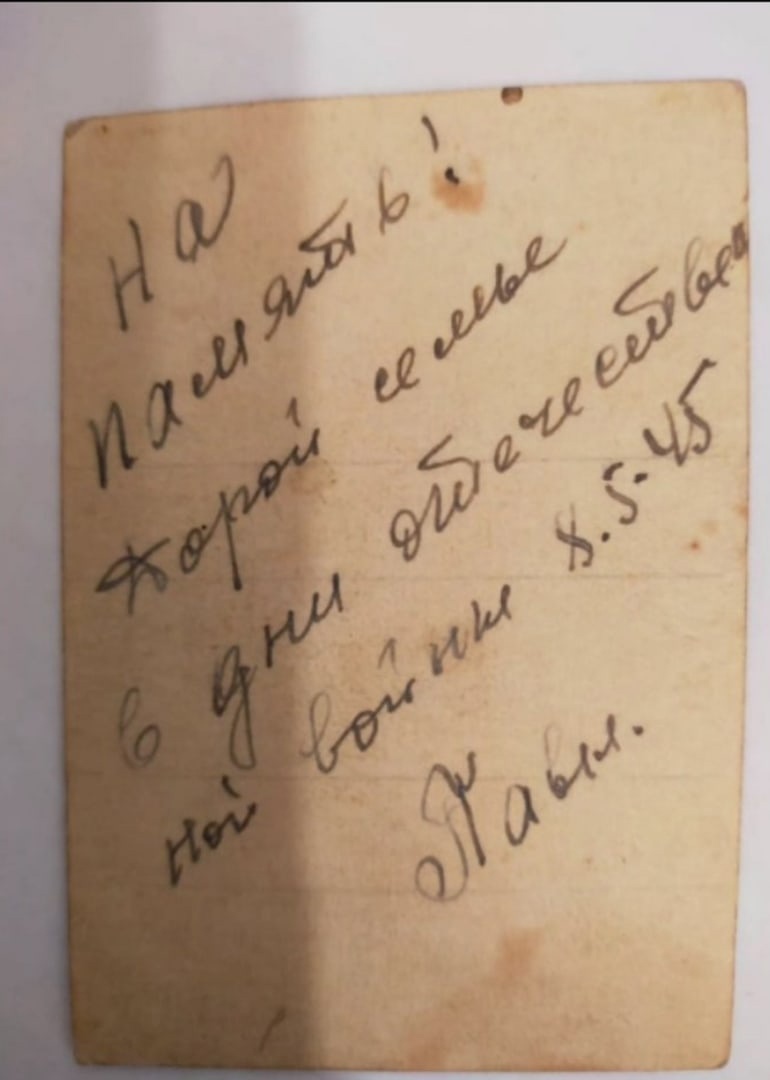 На
память!
семье
в дни отечествен
ной войны 8.5.45
Павл.